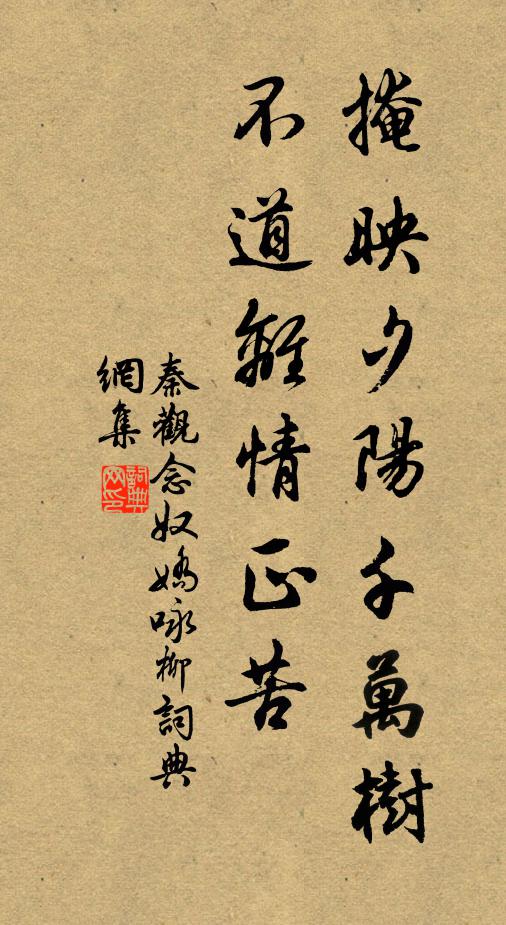 掩映夕陽千萬樹
不道離情正苦
秦觀念奴嬌咏柳詞典
網集
詞典
网印